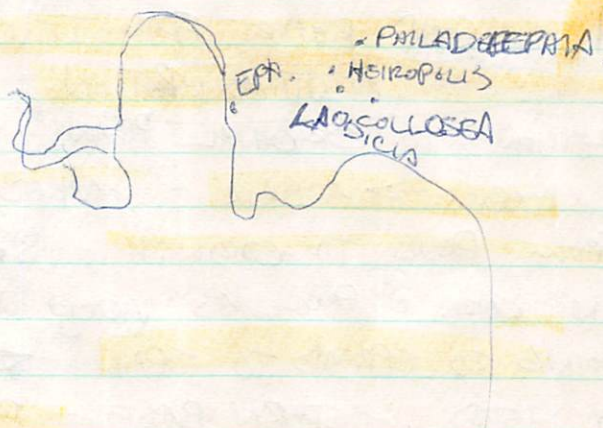 PHILADELEPHIA
EPH. HEIROPOLIS
LAO COLLOSEA
DICIA